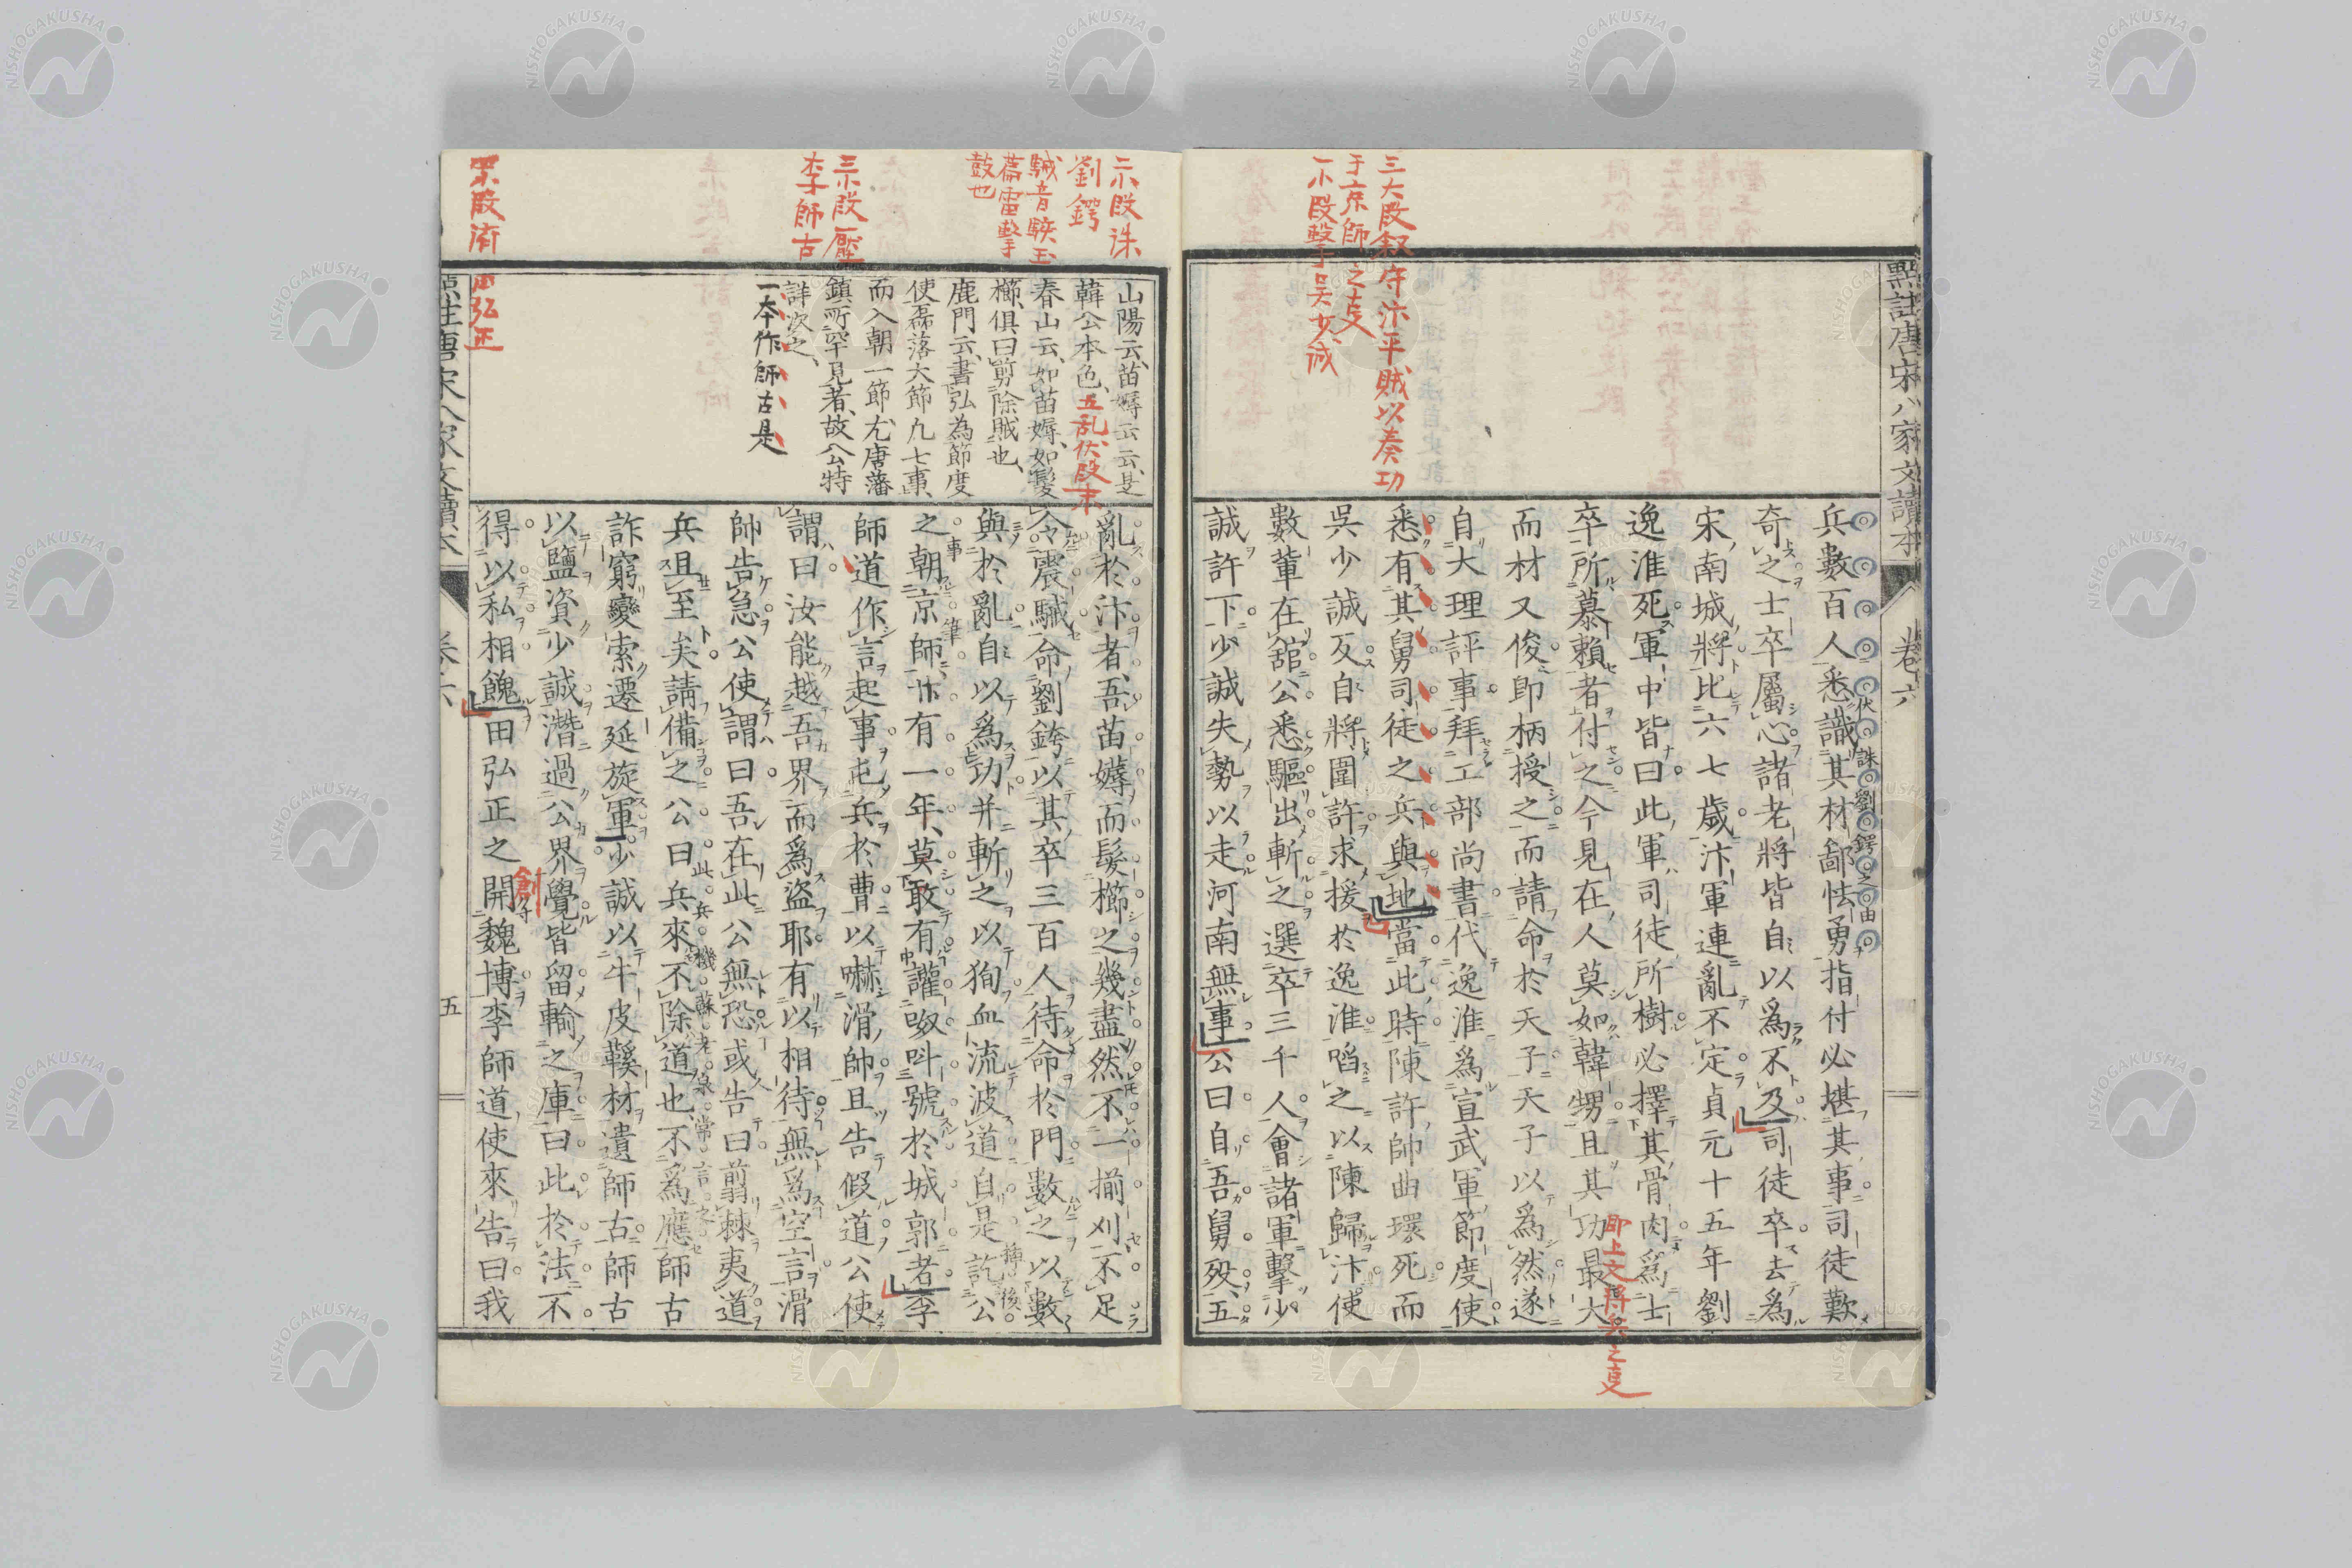 點註唐宋八家文讀本
卷六
三大段叙守汴平賊以奏功
于京師之支
一小段擊于吳少誠
兵數百人悉識其材鄙怯勇指付必堪其事司徒歎
伏誅劉鍔之由
奇之士卒屬心諸老將皆自以爲不及司徒卒去爲
宋南城將比六七歲汴軍連亂不定貞元十五年劉
逸淮死軍中皆曰此軍司徒所樹必擇其骨肉爲士
卒所慕賴者付之今見在人莫如韓甥且其功最大
即上文將兵之支
而材又俊卽柄授之而請命於天子天子以爲然遂
自大理評事拜工部尚書代逸淮爲宣武軍節度使
悉有其舅司徒之兵與地當此時陳許帥曲環死而
吳少誠反自將圍許求援於逸淮啗之以陳歸汴使
數輩在舘公悉驅出斬之選卒三千人會諸軍擊少
誠許下少誠失勢以走河南無事公曰自吾舅歿五
二小段誅
劉鍔
駴音駭玉
篇雷擊
鼓也
三小段壓
李師古
山陽云苗媷云云是
韓公本色
五乱伏段末
春山云如苗媷如髮
櫛俱曰剪除賊也
鹿門云書弘為節度
使磊落大節凡七事
而入朝一節尤唐藩
鎮所罕見者故公特
詳次之
一本作師古是
亂於汴者吾苗媷而髮櫛之幾盡然不一揃刈不足
令震駴命劉鍔以其卒三百人待命於門數之以數
與於亂自以爲功并斬之以狥血流波道自是訖公
之朝京師廿有一年莫敢有讙呶呌號於城郭者李
師道作言起事屯兵於曹以嚇滑帥且告假道公使
謂曰汝能越吾界而爲盜耶有以相待無爲空言滑
帥告急公使謂曰吾在此公無恐或告曰翦棘夷道
兵且至矣請備之公曰兵來不除道也不爲應師古
此兵機蘇老泉常言之
詐窮變索遷延旋軍少誠以牛皮鞵材遺師古師古
以鹽資少誠潛過公界覺皆留輸之庫曰此於法不
得以私相餽田弘正之開魏博李師道使來告曰我
田弘正
五